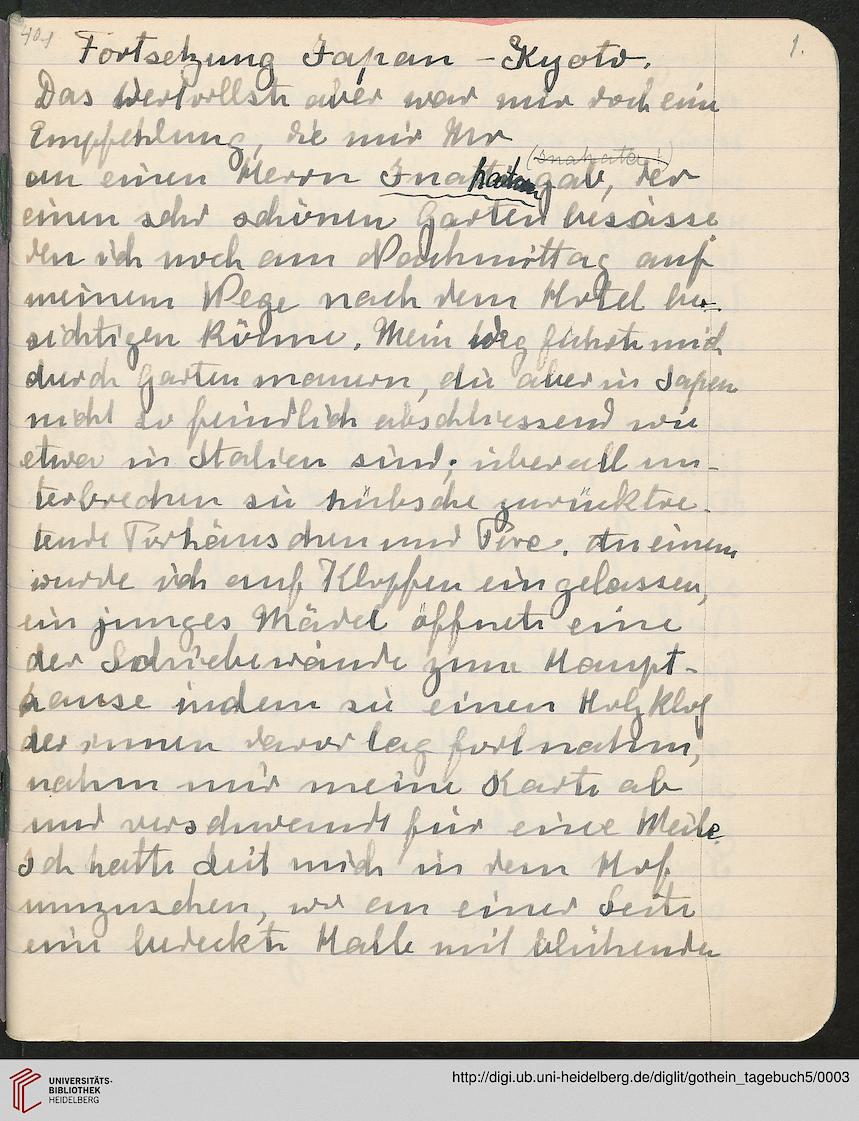 401
1.
Fortsetzung Japan – Kyoto.
Das Wertvollste aber war mir doch eine
Empfehlung, die mir Mr
(Inahata!)
an einen Herrn Inahata gab, der
einen sehr schönen Garten besässe
den ich noch am Nachmittag auf
meinem Wege nach dem Hotel be-
sichtigen könne. Mein Weg führte mich
durch Gartenmauern, die aber in Japan
nicht so feindlich abschliessend wie
etwa in Italien sind; überall un-
terbrechen sie hübsche zurücktre-
tende Torhäuschen und Tore. An einem
wurde ich auf Klopfen eingelassen,
ein junges Mädel öffnete eine
der Schiebewände zum Haupt-
hause indem sie einen Holzklotz
der innen davor lag fortnahm,
nahm mir meine Karte ab
und verschwand für eine Weile.
Ich hatte Zeit mich in dem Hof
umzusehen, wo an einer Seite
eine bedeckte Halle mit blühenden
UNIVERSITÄTS-
BIBLIOTHEK
HEIDELBERG
http://digi.ub.uni-heidelberg.de/diglit/gothein_tagebuch5/0003